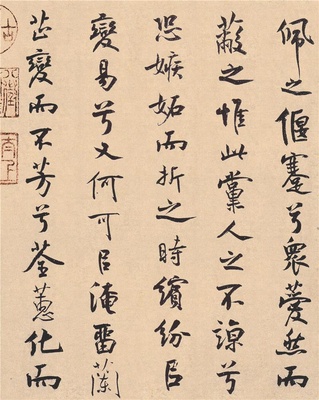 佩之偃蹇兮衆薆然而
蔽之惟此黨人之不諒兮
恐嫉妬而折之時繽紛㠯
變易兮又何可㠯淹留蘭
芷變而不芳兮荃蕙化而